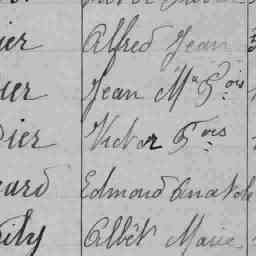 ier Alfred Jean
ier Jean Mie Fois
Dier Victor Fois
uard Edmond Anatole
ily Albert Marie